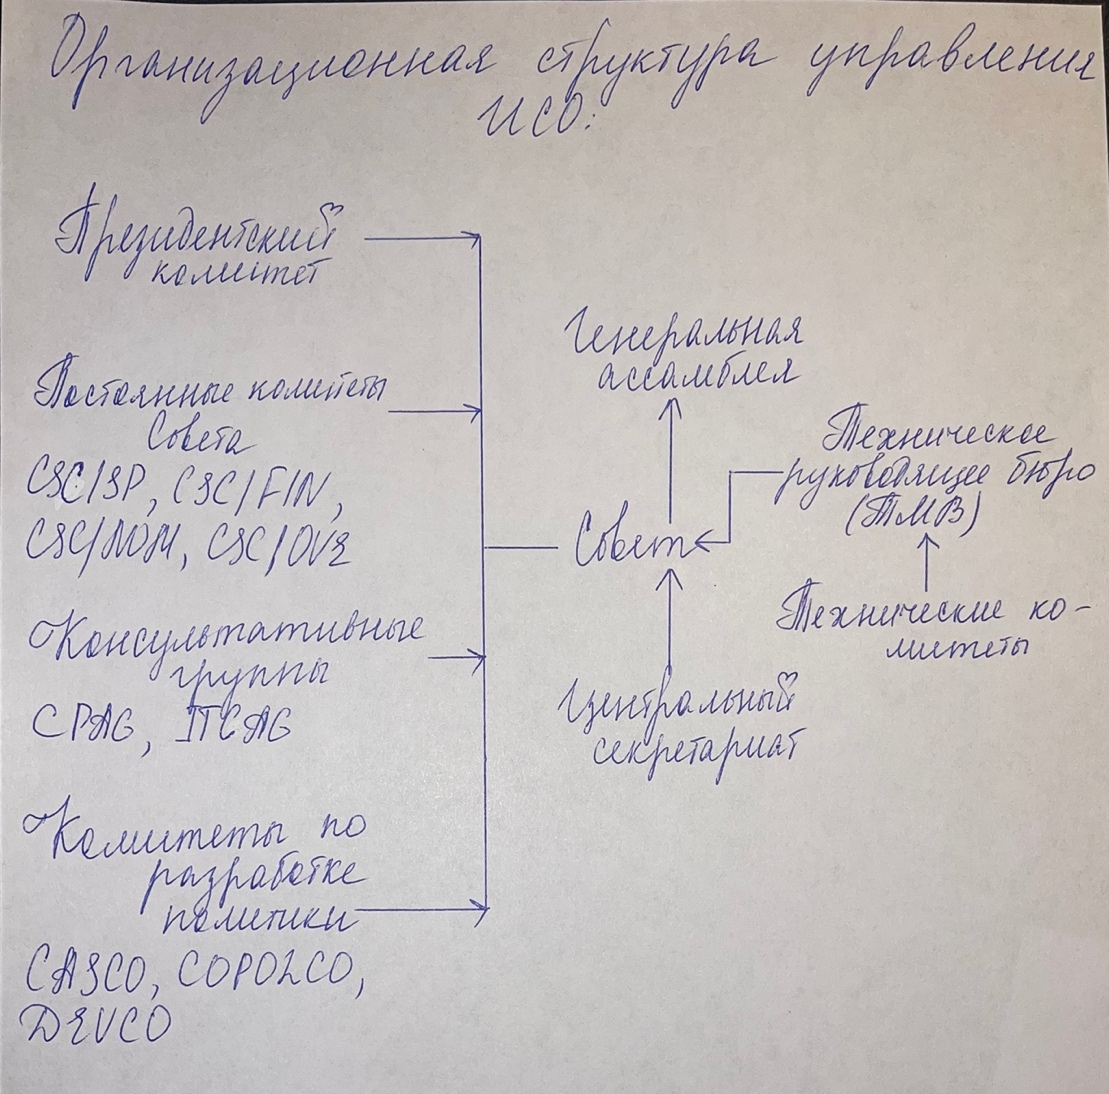 Организационная структура управления
ИСО:
Президентский
комитет
Постоянные комитеты
Совета
CSC/SP, CSC/FIN,
CSC/NOM, CSC/OVE
Консультативные
группы
CPAG, ITCAG
Комитеты по
разработке
политики
CASCO, COPOLCO,
DEVCO
Генеральная
ассамблея
Совет
Центральный
секретариат
Техническое
руководящее бюро
(ТМВ)
Технические ко-
митеты